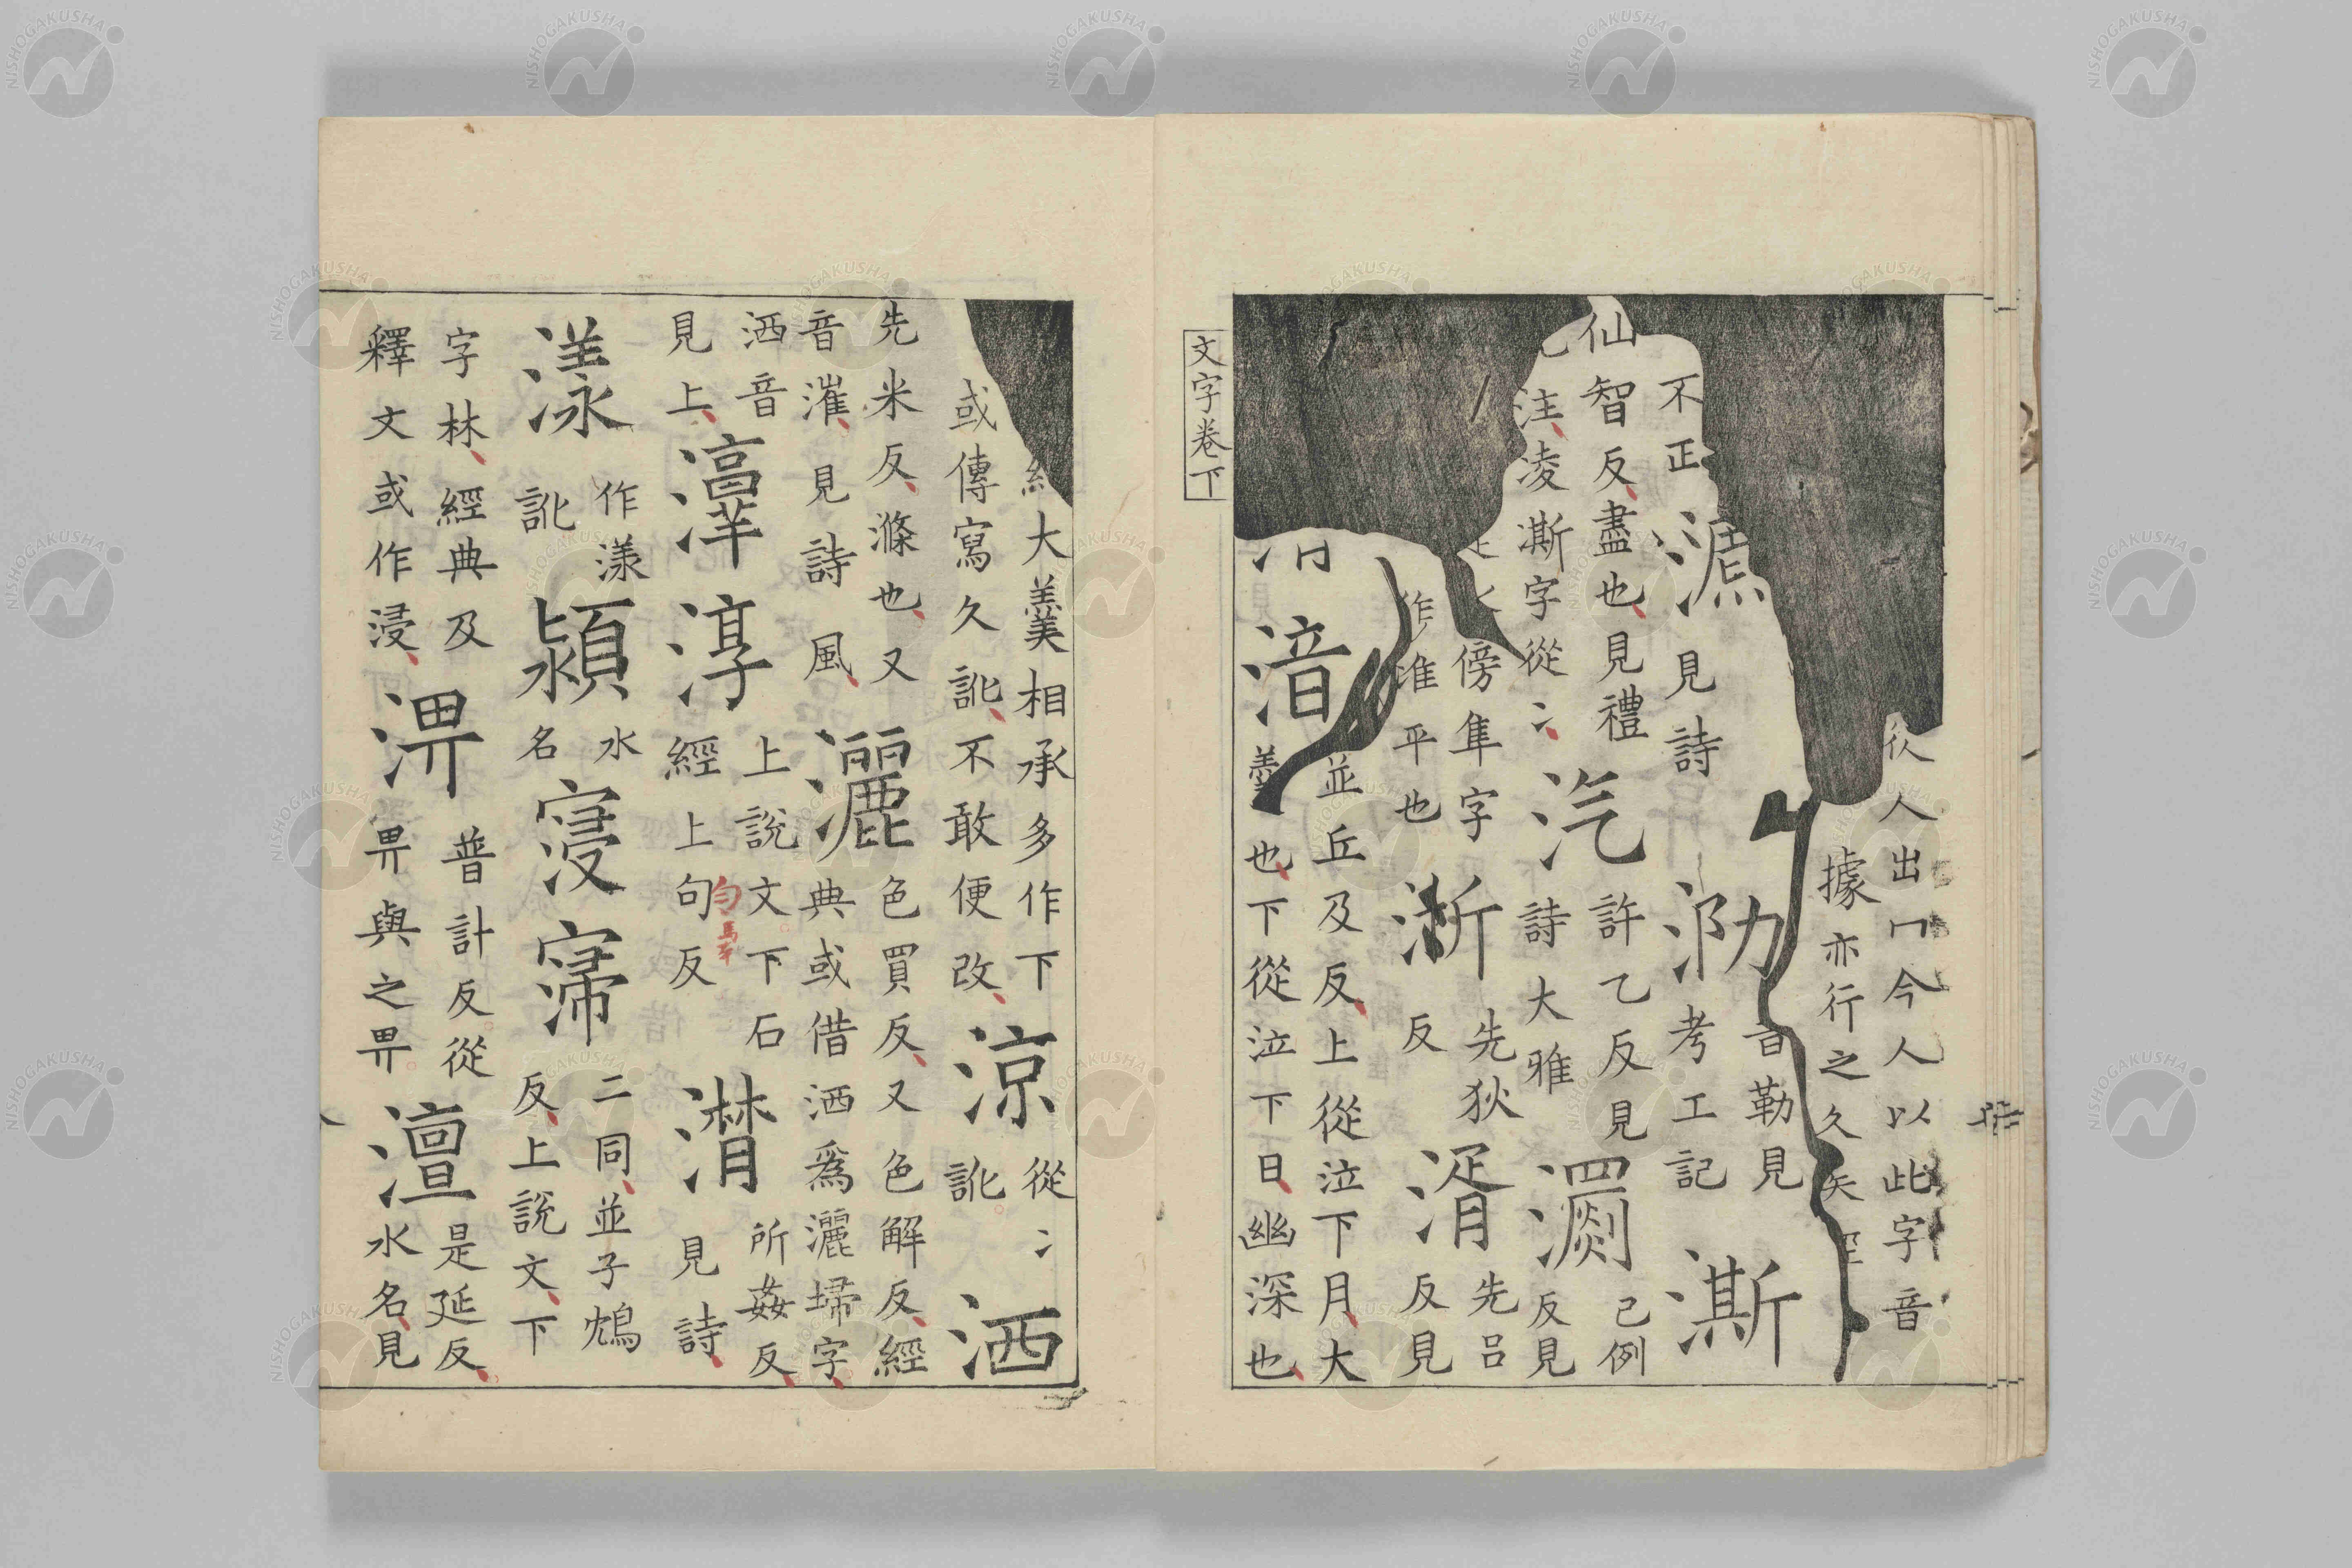 人出冖今人以此字音
據亦行之久矣
不正
見詩
泐
音勒見
考工記
澌
仙智反盡也見禮
注凌澌字從冫
汽
許乙反見
詩大雅
瀱
己例
反見
傍隼字
作准平也
淅
先狄
反
湑
先呂
反見
湆
並丘及反上從泣下月大
羹也下從泣下日幽深也
文字卷下
大羹相承多作下
或傳寫久訛不敢便改
涼
從冫
訛
洒
先米反滌也又
音漼見詩風
灑
色買反又色解反經
典或借洒爲灑埽字
洒音
見上
淳
上說文下石
經上句反
勻
潸
所姦反
見詩
漾
作漾
訛
潁
水
名
寖
二同並子鴆
反上說文下
字林經典及
釋文或作浸
淠
普計反從
畀畀與之畀
澶
是延反
水名見
NISHOGAKUSHA